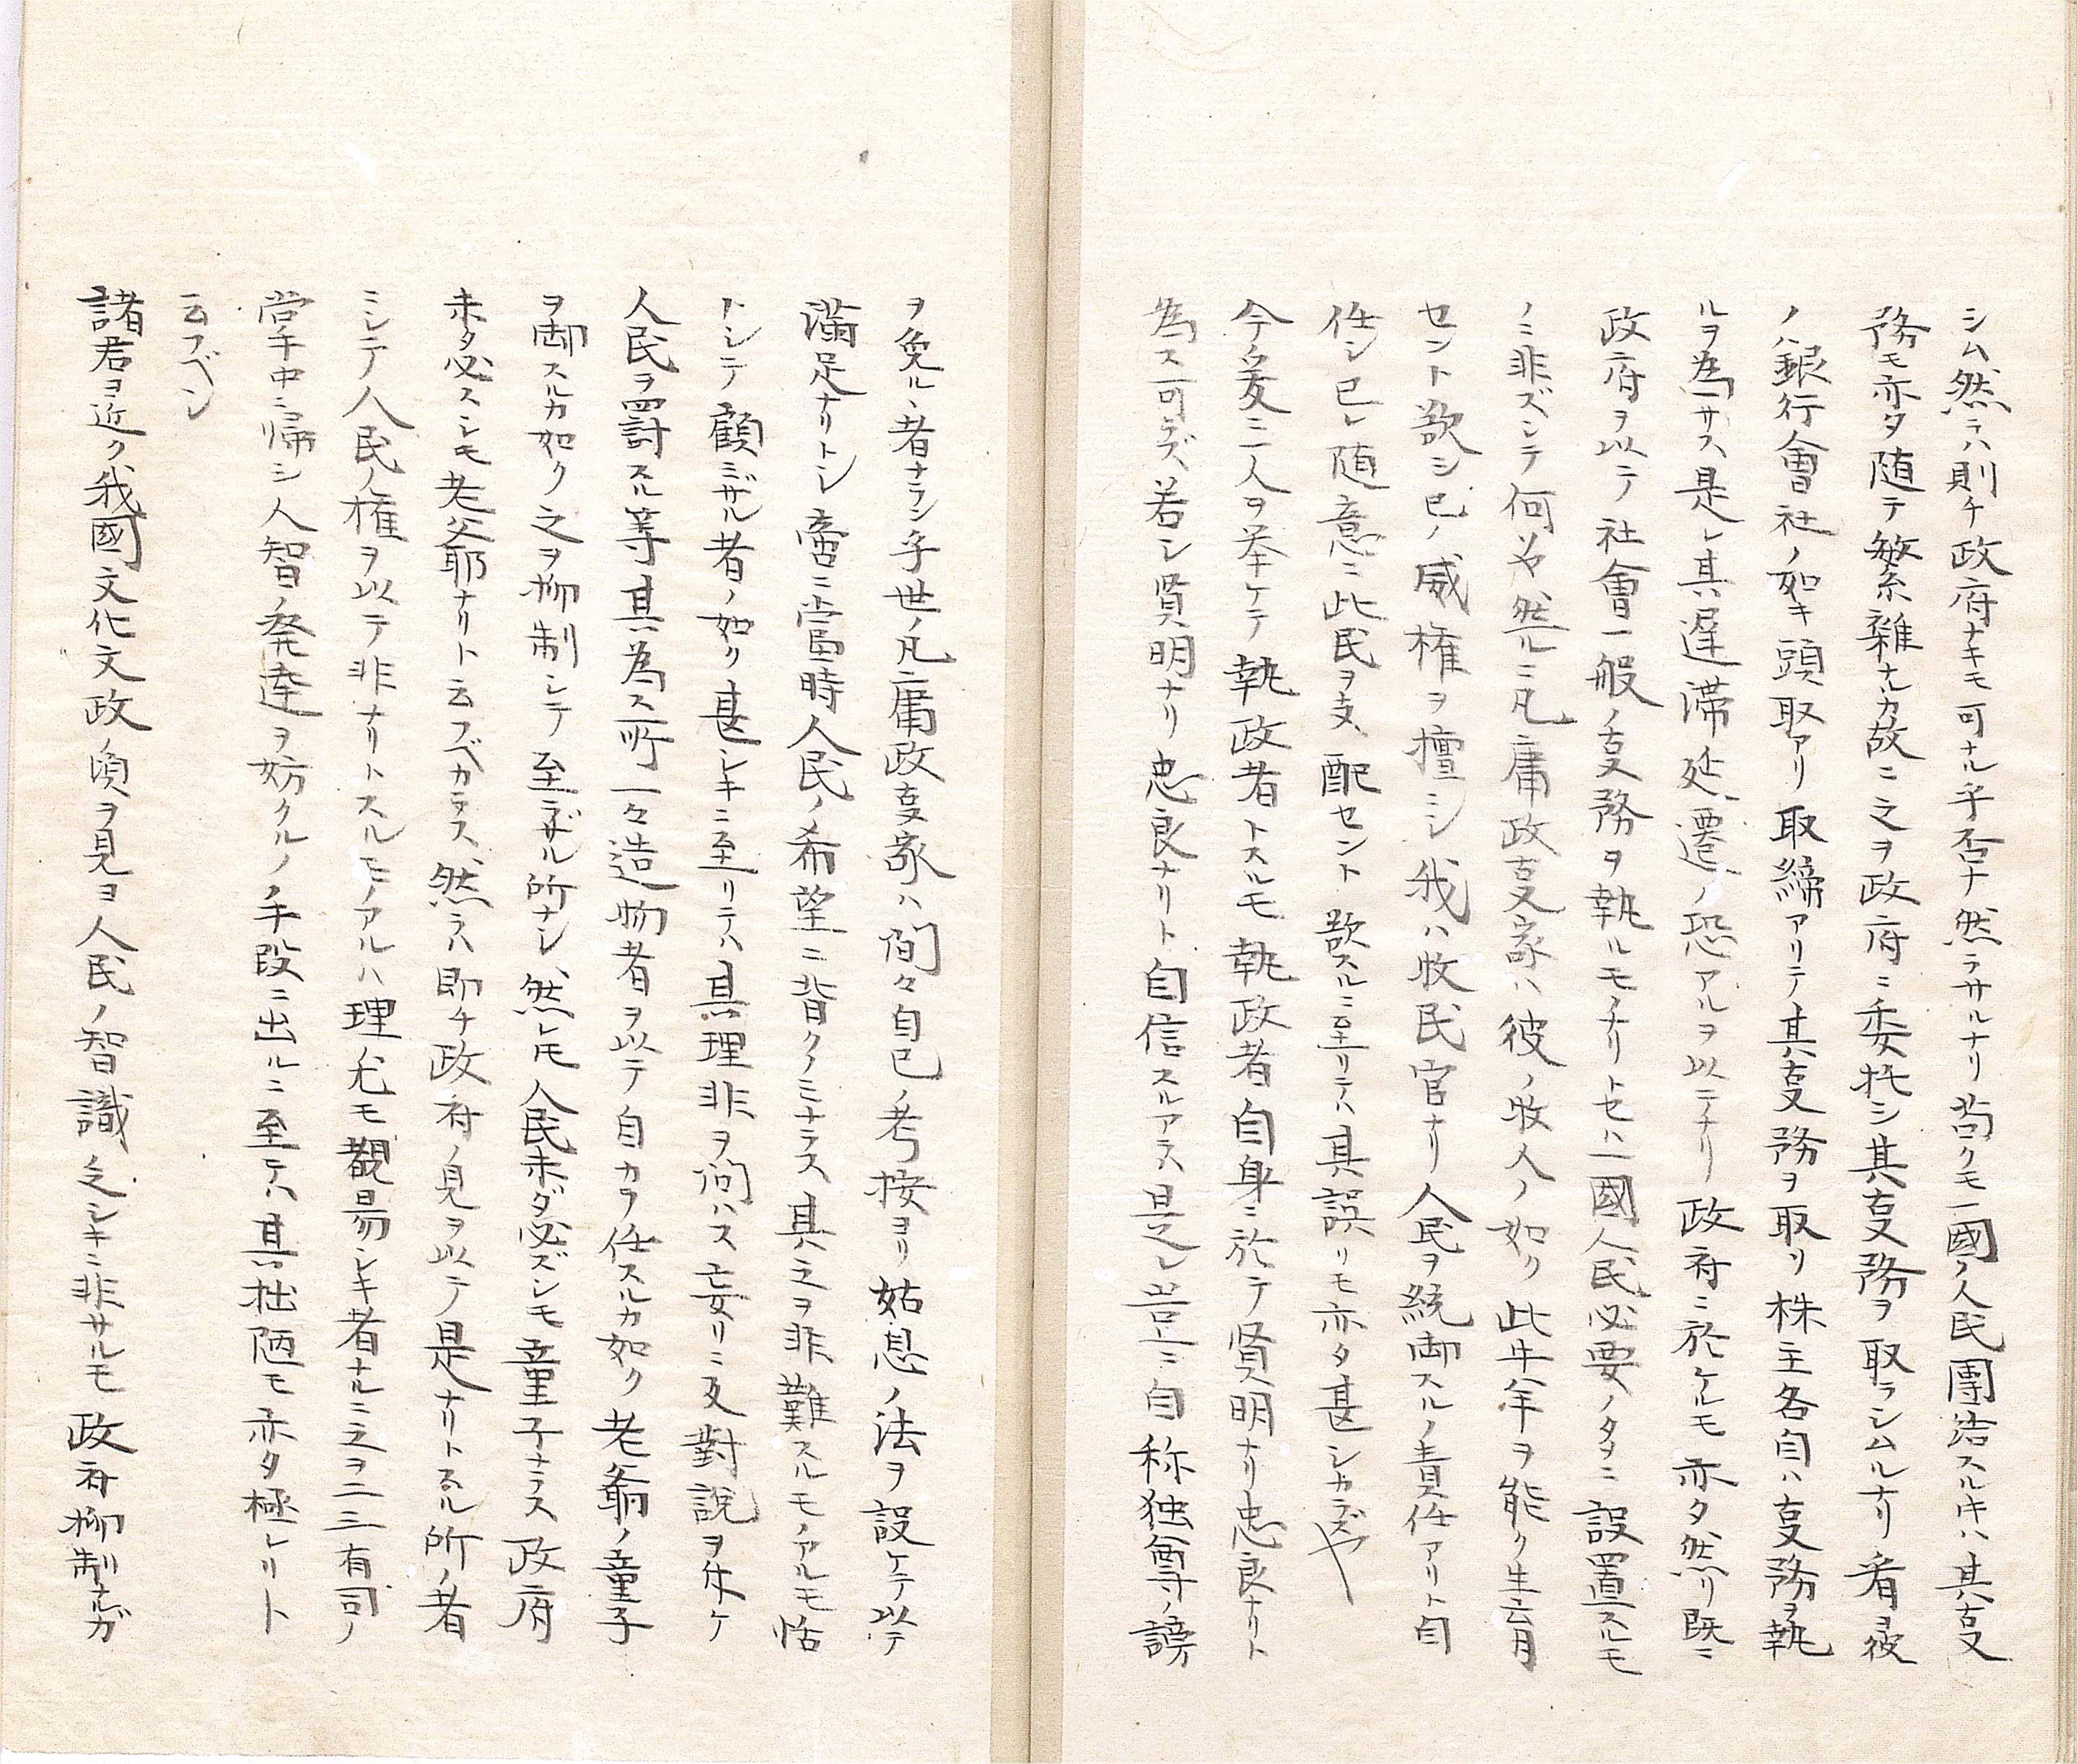 シム然ラハ則チ政府ナキモ可ナル乎否ナ然ラサルナリ苟クモ一國ノ人民團結スルキハ其叓
務モ亦タ随テ繁雜ナルカ故ニ之ヲ政府ニ委托シ其叓務ヲ取ラシムルナリ看ヨ彼
ノハ銀行會社ノ如キ頭取アリ取締アリテ其叓務ヲ取リ株主各自ハ叓務ヲ執
ルヲ為サス是レ其遅滞延遷ノ恐アルヲ以テナリ政府ニ於ケルモ亦タ然リ既ニ
政府ヲ以テ社會一般ノ叓務ヲ執ルモノナリトセハ一國人民必要ノタメニ設置スルモ
ノミ非ズシテ何ゾヤ然ルニ凡庸政叓家ハ彼ノ牧人ノ如ク此牛羊ヲ能ク生育
セント欲シ已ノ威權ヲ擅ニシ我ハ牧民官ナリ人民ヲ統御スルノ責任アリト自
任シ已レ随意ニ此民ヲ支配セント欲スルニ至リテハ其誤リモ亦タ甚シカラズヤ
今爰ニ一人ヲ挙ケテ執政者トスルモ執政者自身ニ於テ賢明ナリ忠良ナリト
為ス可ラズ若シ賢明ナリ忠良ナリト自信スルアラハ是レ岂ニ自称独尊ノ謗
ヲ免ルヽ者ナラン乎世ノ凡庸政叓家ハ間々自己ノ考按ヨリ姑息ノ法ヲ設ケテ以テ
滿足ナリトシ啻ニ當時人民ノ希望ニ背クノミナラス其之ヲ非難スルモノアルモ恬
トシテ顧ミザル者ノ如ク甚シキニ至リテハ其理非ヲ問ハス妄リニ反對説ヲ休ケ
人民ヲ罸討スル等其為ス所一々造物者ヲ以テ自カラ任スルカ如ク老爺ノ童子
ヲ御スルカ如ク之ヲ抑制シテ至ラザル所ナシ然レ𪜈人民未ダ必ズシモ童子ナラス政府
未タ必スシモ老爺ナリト云フベカラス然ラハ即チ政府ノ見ヲ以テ是ナリトスル所ノ者
ニシテ人民ノ權ヲ以テ非ナリトスルモノアルハ理尤モ覩易シキ者ナルニ之ヲ二三有司ノ
掌中ニ帰シ人智ノ発達ヲ妨クルノ手段ニ出ルニ至テハ其拙陋モ亦タ極レリト
云フベシ
諸君ヨ近ク我國文化文政ノ頃ヲ見ヨ人民ノ智識乏シキニ非サルモ政府抑制ナルガ